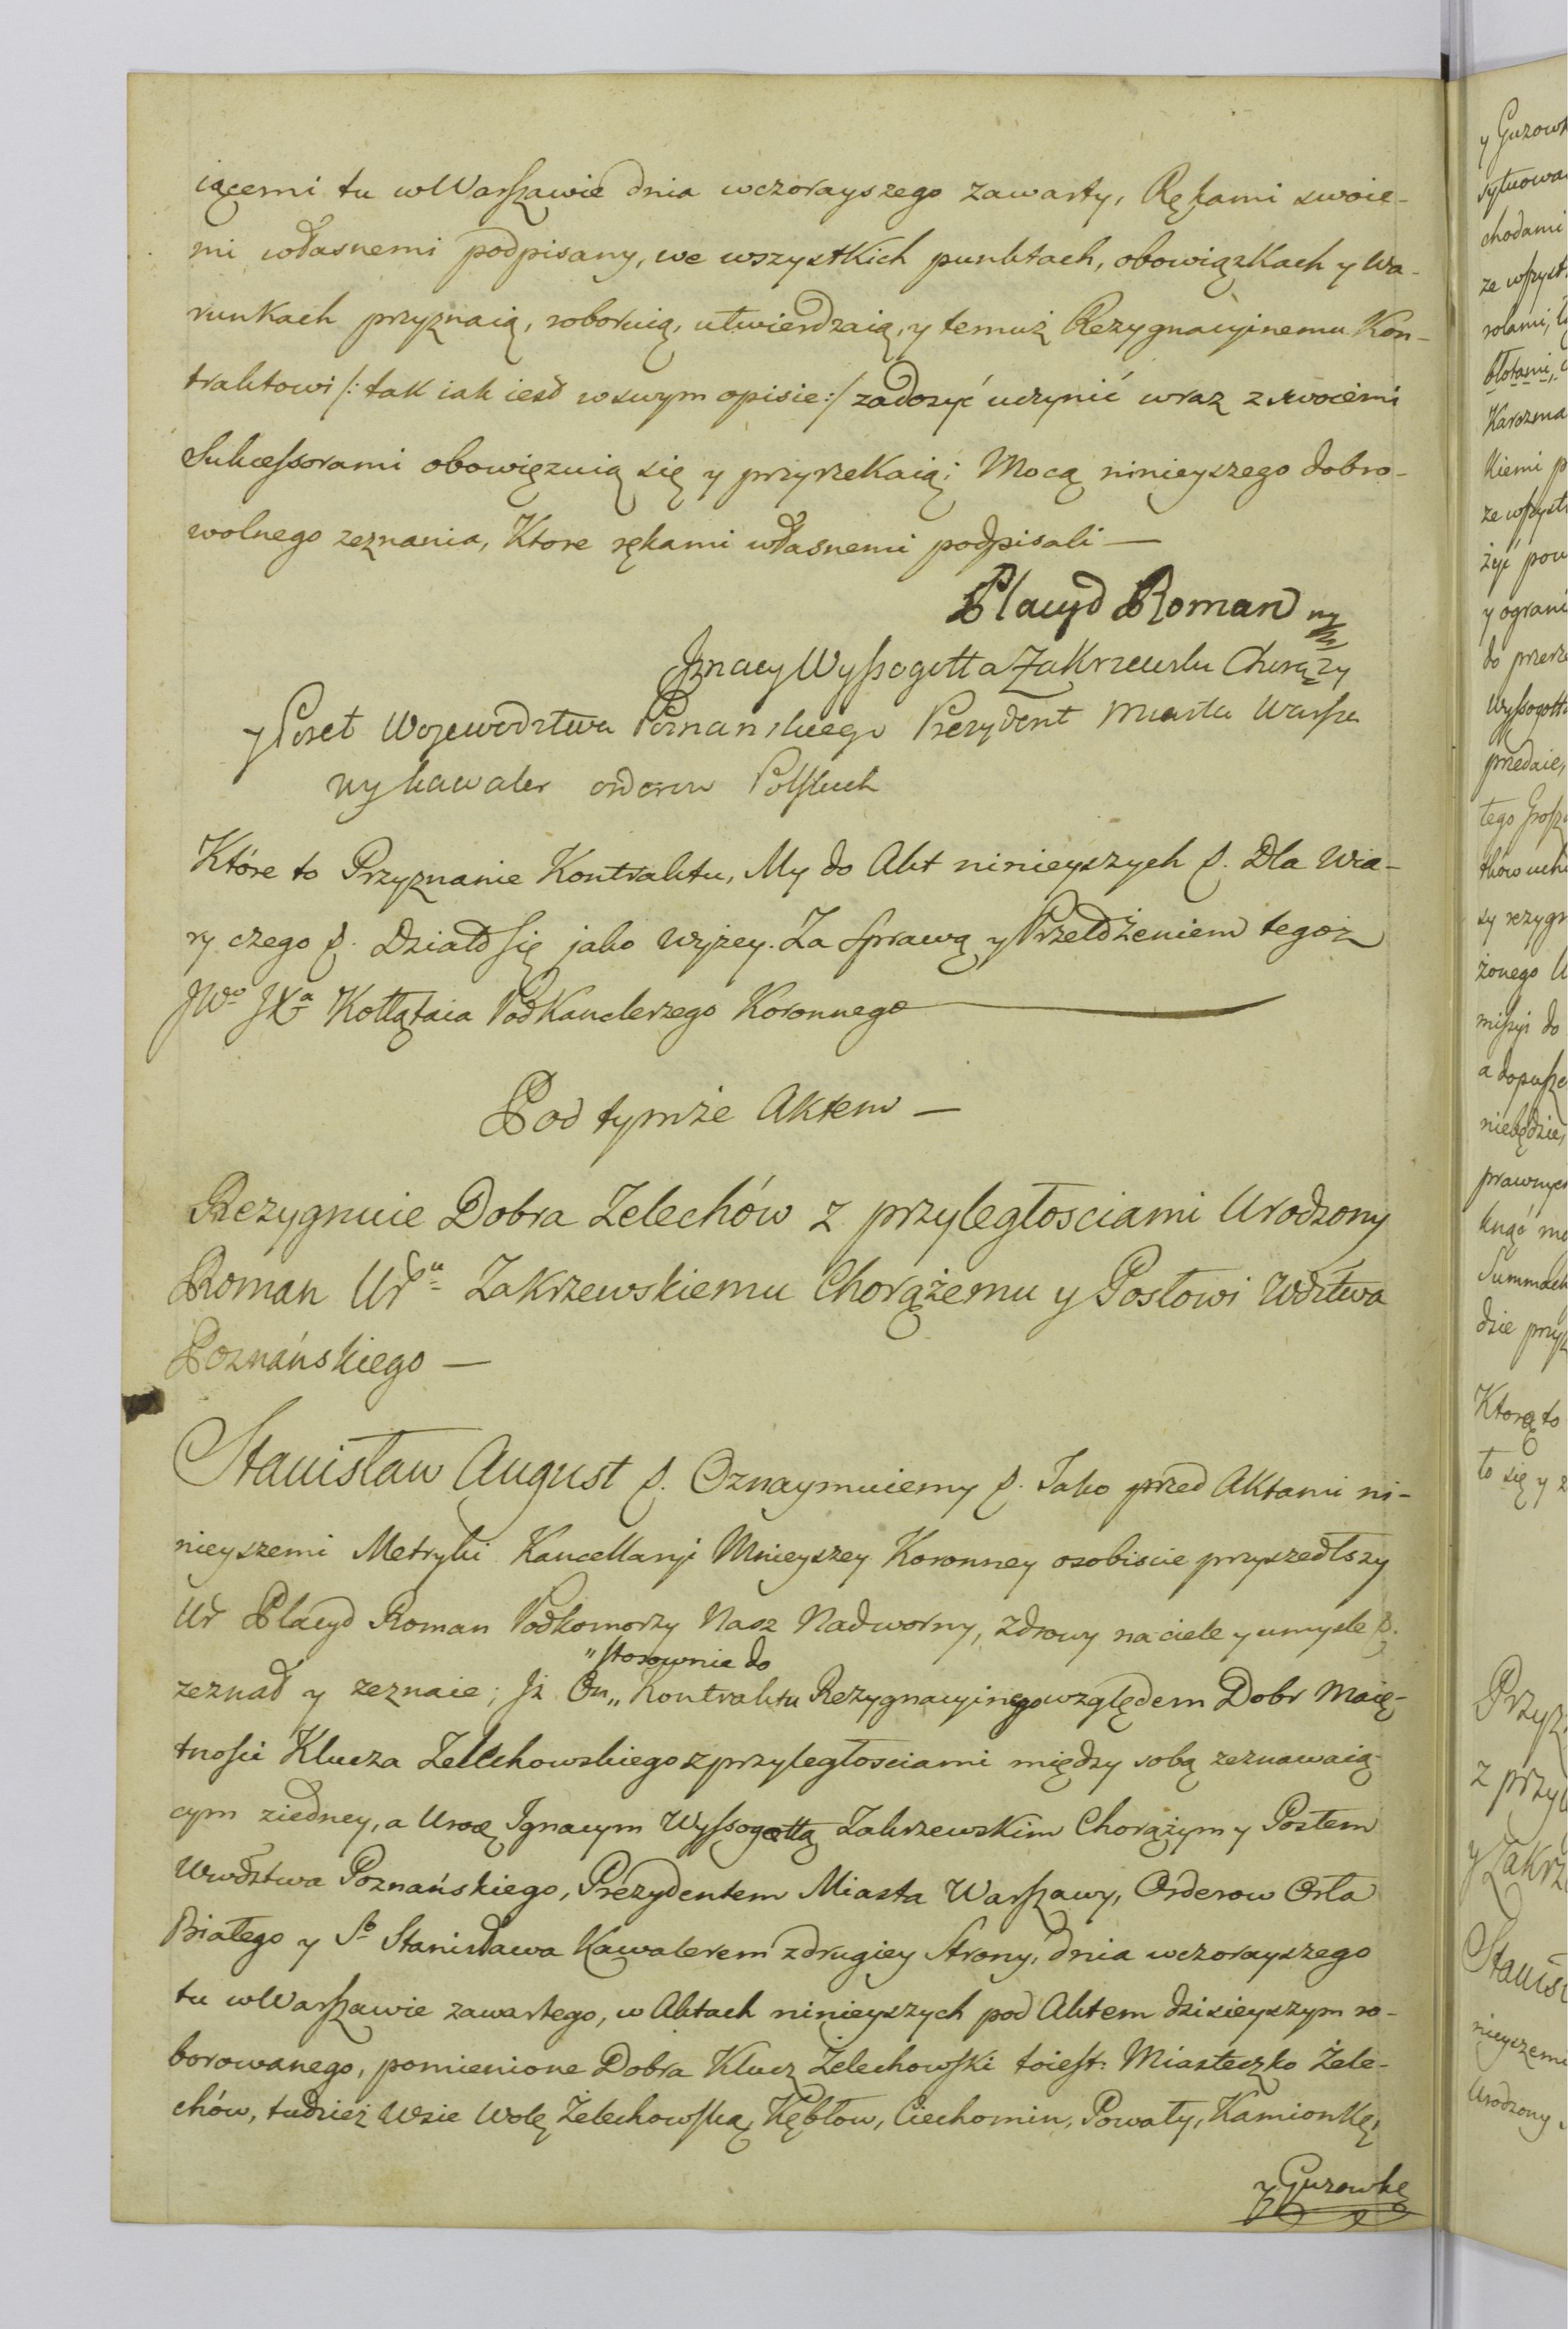 iącemi tu w Warszawie dnia wczorayszego zawarty, Rękami swoie-
mi własnemi podpisany, we wszystkich punktach, obowiązkach y Wa-
runkach przyznaią, roboruią, utwierdzaią, y temuż Rezygnacyinemu Kon-
traktowi /: tak iak iest w swym opisie :/ zadosyć uczynić wraz z swoiemi
Sukcessorami obowięzuią się y przyrzekaią; Mocą ninieyszego dobro-
wolnego zeznania, Ktore rękami własnemi podpisali —
Placyd Roman
Ignacy Wyssogotta Zakrzewski Chorąży
y Poseł Wojewodztwa Poznanskiego Prezydent Miasta Warsza
wy kawaler orderow Polskich
Które to Przyznanie Kontraktu, My do Akt ninieyszych p. Dla Wia-
ry czego p. Działo się jako Wyżey. Za Sprawą y Przełożeniem tegoż
JWo JXa Kołłątaia Podkanclerzego Koronnego
Pod tymże Aktem —
Rezygnuie Dobra Zelechów z przyległosciami Urodzony
Roman Uru Zakrzewskiemu Chorążemu y Posłowi Wdztwa
Poznańskiego —
Stanisław August p. Oznaymuiemy p. Jako przed Aktami ni-
nieyszemi Metryki Kancellaryi Mnieyszey Koronney osobiscie przyszedłszy
Ur Placyd Roman Podkomorzy Nasz Nadworny, zdrowy na ciele y umysle p.
"stosownie do
zeznał y zeznaie; Iż On „ Kontraktu Rezygnacyinego względem Dobr Maię-
tnosci Klucza Zelechowskiego z przyległosciami między sobą zeznawaią-
cym z iedney, a Uroę Ignacym Wyssogottą Zakrzewskim Chorążym y Posłem
Wwdztwa Poznańskiego, Prezydentem Miasta Warszawy, Orderow Orła
Białego y So Stanisława Kawalerem z drugiey Strony, dnia wczorayszego
tu w Warszawie zawartego, w Aktach ninieyszych pod Aktem dzisieyszym ro-
borowanego, pomienione Dobra Klucz Żelechowski toiest: Miasteczko Żele-
chów, tudzież Wsie Wolę Żelechowską, Kębłow, Ciechomin, Powały, Kamionkę,
y Guzowkę